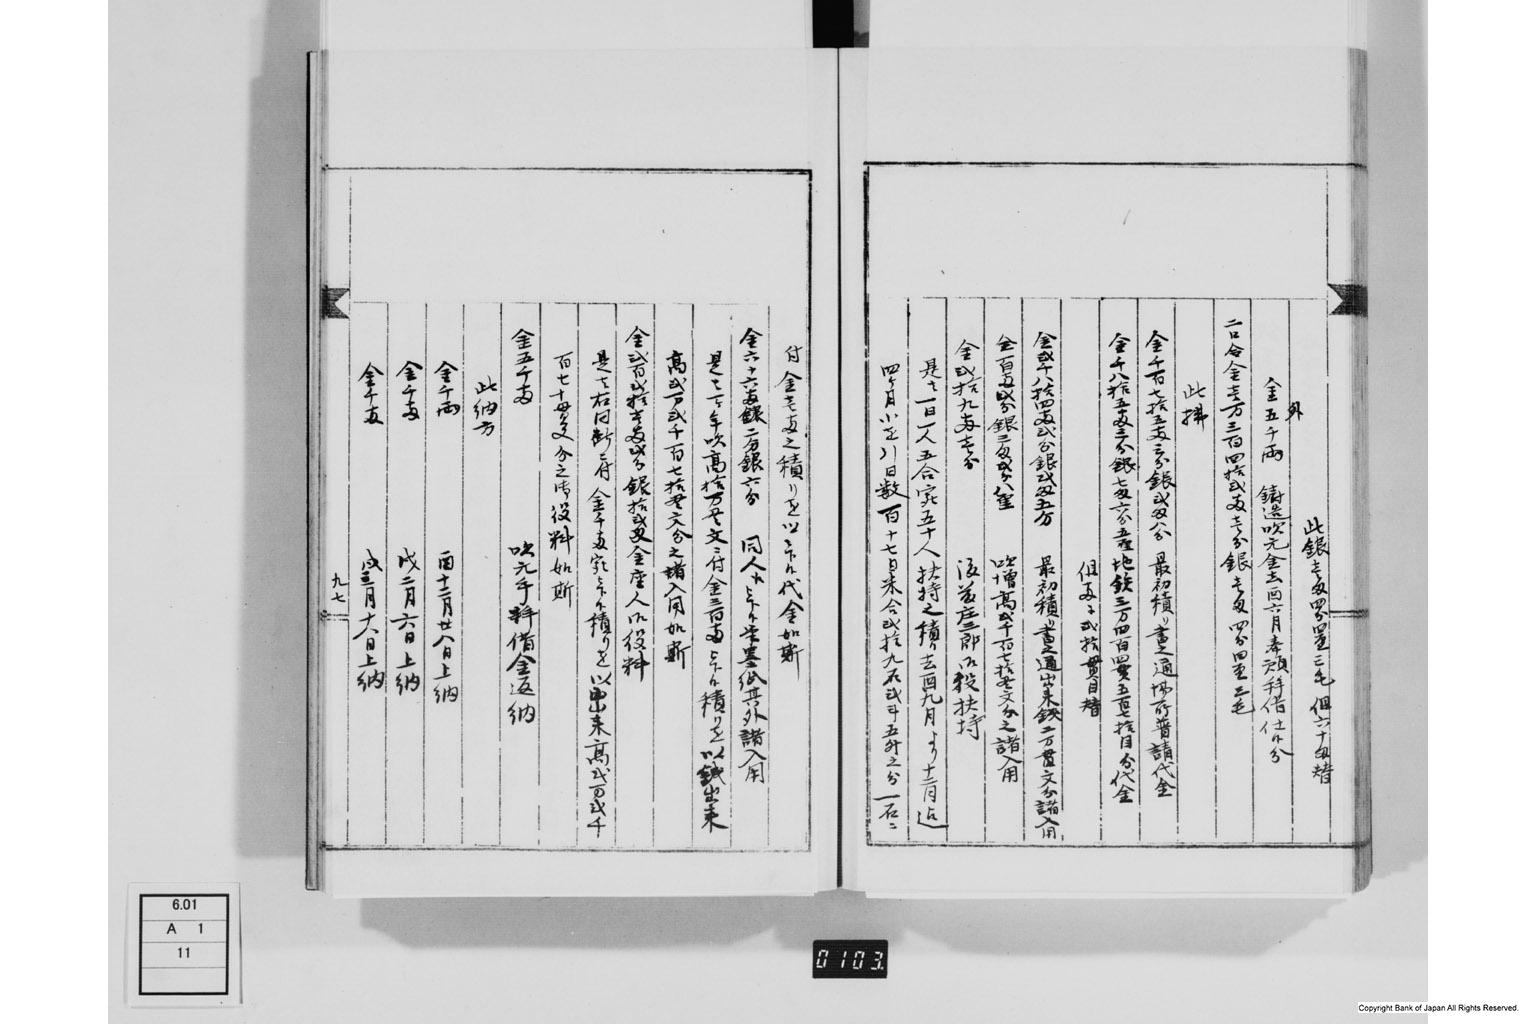 此銀壱匁四分四厘三毛 但六十匁替
外
金五千両 鋳造吹元金去酉六月奉願拝借仕候分
二口合金壱万三百四拾弐両壱分銀壱匁四分四厘三毛
此拂
金千百七拾五両三分銀弐匁八分 最初積り書之通場所普請代金
金千八拾五両三分銀七匁六分五厘 地鉄三万四百四貫五百七拾目分代金
但両ニ弐拾貫目替
金弐千八拾四両弐分銀弐匁五分 最初積り書之通出来銭二万貫文分諸入用
金百両弐分銀三匁弐分八厘 吹増高弐千百七拾貫文分之諸入用
金弐拾九両壱分 後藤庄三郎御役扶持
是者一日一人五合宛五十人扶持之積り去酉九月より十二月迄
四ヶ月小を引日数百十七日米合弐拾九石弐斗五升之分一石ニ
付金壱両之積りを以被下候代金如斯
金六十六両銀二分銀六分 同人江被下候筆墨紙其外諸入用
是者一ヶ年吹高拾万貫文ニ付金三百両被下候積りを以銭出来
高弐万弐千百七拾貫文分之諸入用如斯
金弐百弐拾壱両弐分銀拾弐匁 金座人御役料
是者右同断ニ付金千両宛被下候積りを以出来高弐万弐千
百七十貫文分之御役料如斯
金五千両 吹元手拝借金返納
此納方
金千両 酉十二月廿八日上納
金千両 戌二月六日上納
金千両 戌三月十八日上納
九七
6.01
A 1
11
0103.
Copyright Bank of Japan All Rights Reserved.